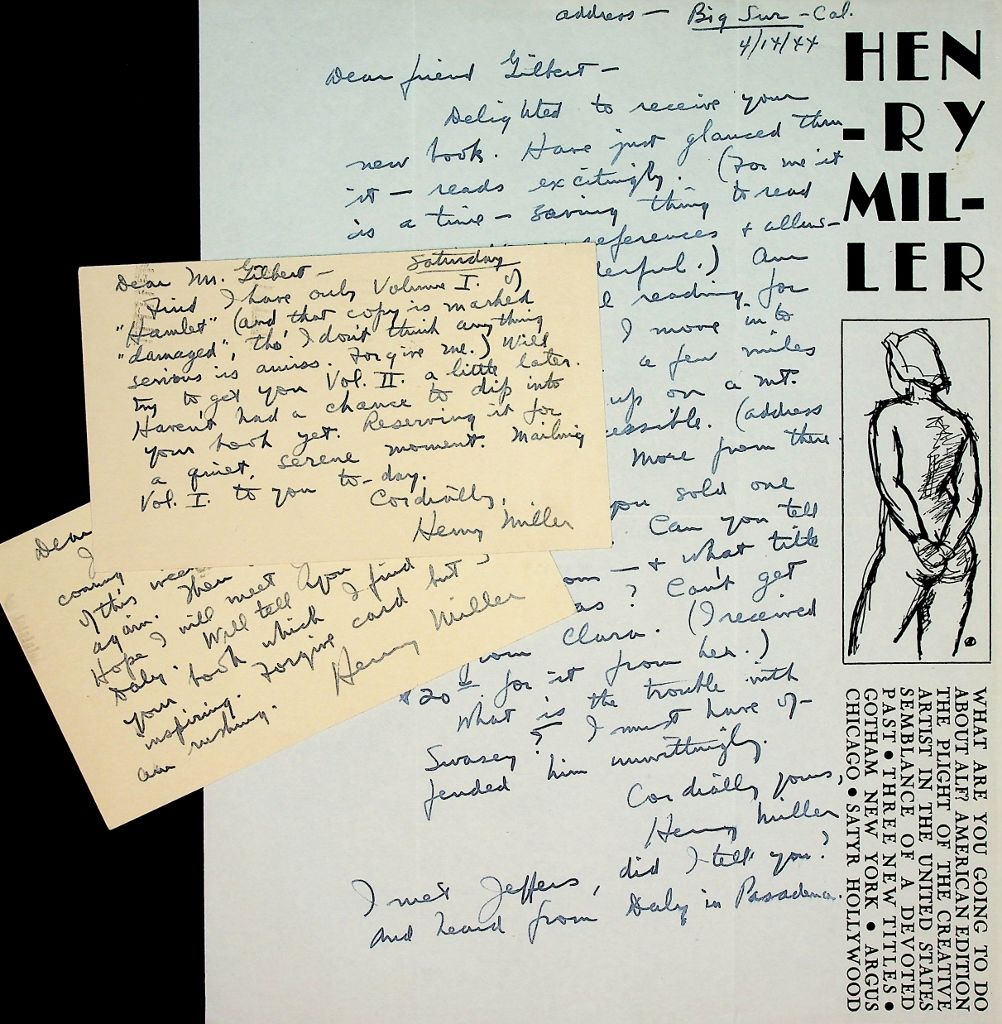 address — Big Sur - Cal.
4/14/44
Dear friend Gilbert —
Delighted to receive your
new book. Have just glanced thru
it — reads excitingly. (For me it
is a time-saving thing to read
references & allus-
derful.) Am
reading for
I move in to
a few miles
up on a mt.
essible. (address
More from there.
you sold one
Can you tell
— & what title
as? Can't get
from Clara. (I received
$20 for it from her.)
What is the trouble with
Swasey? I must have of-
fended him unwittingly.
Cordially yours,
Henry Miller
I met Jeffers, did I tell you?
and heard from Daly in Pasadena.
Dear Mr. Gilbert — Saturday
Find I have only Volume I. of
"Hamlet" (and that copy is marked
"damaged", tho' I don't think anything
serious is amiss. Forgive me.) Will
try to get you Vol. II. a little later.
Haven't had a chance to dip into
your book yet. Reserving it for
a quiet, serene moment. Mailing
Vol. I. to you to-day.
Cordially,
Henry Miller
Dear
I
coming
of this week
again. Then
Hope I will meet
Daly. Will tell
your book which I find
inspiring. Forgive card but I
am rushing.
Henry Miller
HEN
-RY
MIL-
LER
WHAT ARE YOU GOING TO DO
ABOUT ALF? AMERICAN EDITION
THE PLIGHT OF THE CREATIVE
ARTIST IN THE UNITED STATES
SEMBLANCE OF A DEVOTED
PAST • THREE NEW TITLES •
GOTHAM NEW YORK • ARGUS
CHICAGO • SATYR HOLLYWOOD